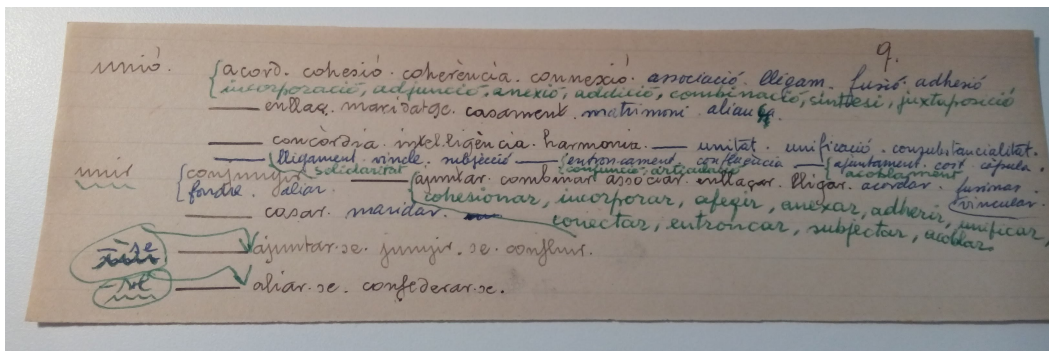 9.
unió. {acord. cohesió. coherència. connexió. associació. lligam. fusió. adhesió
incorporació, adjunció, anexió, addició, combinació, síntesi, juxtaposició
—— enllaç. maridatge. casament. matrimoni. aliança.
—— concòrdia. intel.ligència. harmonia. —— unitat. unificació. consubstancialitat.
—— lligament. vincle. subjecció —— {entroncament. confluència —— {ajuntament. cost. còpula.
solidaritat conjunció, articulació acoblament
unir {conjunyir. —— {ajuntar. combinar. associar. enllaçar. lligar. acordar. fusionar.
fondre. aliar. cohesionar, incorporar, afegir, anexar, adherir, unificar, (vincular.
—— casar. maridar. conectar, entroncar, subjectar, acoblar
-se —— ajuntar.se. junyir.se. confluir.
-se —— aliar.se. confederar.se.